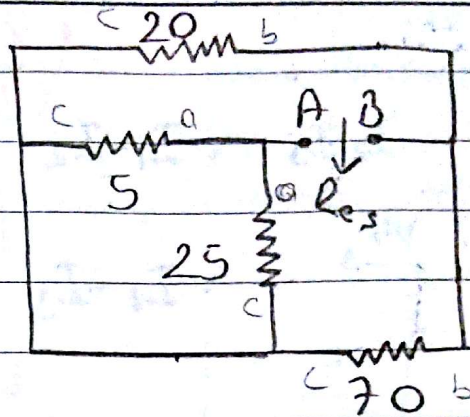 c 20 b
c a A B
5 a Res
25
c
c 70 b